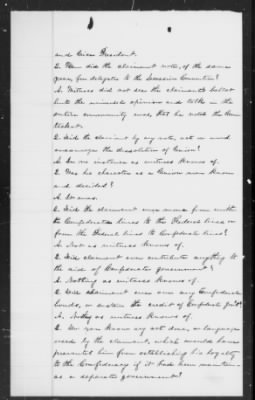 and Vice President.
Q. How did the claimant vote, of the same
year, for delegates to the Secession Convention?
A. Witness did not see the claimant's ballot
but the universal opinion and talk in the
entire community was, that he voted the Union
ticket.
Q. Did the claimant by any vote, act or word
encourage the dissolution of Union?
A. In no instance as witness knows of.
Q. Was his character as a Union man known
and decided?
A. It was.
Q. Did the claimant ever move from within
the Confederate lines to the Federal lines or
from the Federal lines to Confederate lines?
A. Not as witness knows of.
Q. Did claimant ever contribute anything to
the aid of Confederate government?
A. Nothing as witness knows of.
Q. Did claimant ever own any Confederate
bonds, or sustain the credit of Confederate Gov't.
A. Not as witness knows of.
Q. Do you know any act done, or language
used by the claimant, which would have
prevented him from establishing his loyalty
to the Confederacy if it had been maintained
as a separate government?